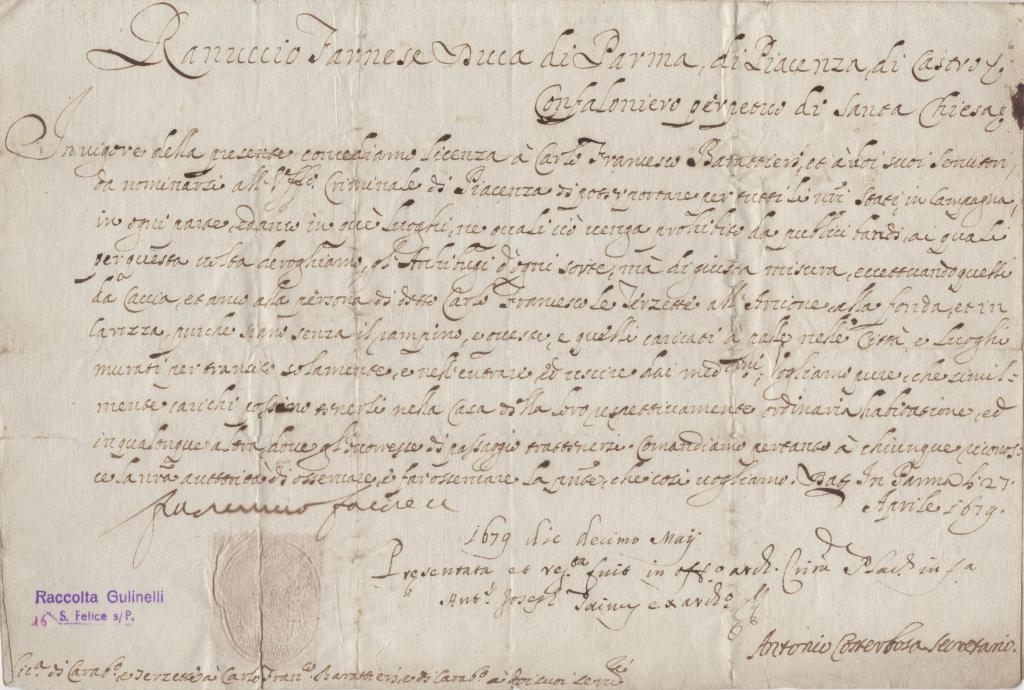 Ranuccio Farnese Duca di Parma, di Piacenza, di Castro &c.
Confaloniero perpetuo di Santa Chiesa &c.
In vigore della presente concediamo licenza à Carlo Francesco Barattieri, et à doi suoi servitori,
da nominarsi all' Uff.o Criminale di Piacenza di poter portare per tutti li nri Stati, in Campagna,
in ogni parte, ed anco in què luoghi, ne quali ciò venga prohibito da publici bandi, ai quali
per questa volta deroghiamo, gl'Archibugi d'ogni sorte, mà di giusta misura, eccettuando quelli
da Caccia, et anco alla persona di detto Carlo Francesco le Terzette all' Arcione, alla fonda, et in
Carozza, purche siano senza il, e queste, e quelli caricati à palle nelle Città e luoghi
murati per transito solamente, e nell' entrare, ed uscire dai med.mi; Vogliamo pure, che simil=
mente carichi possino tenersi nella Casa della loro respettivamente ordinaria habitatione, ed
in qualunque altra, dove gl'occoresse di passaggio trattenersi. Comandiamo pertanto à chiunque riconos=
ce la nra auttorità di osservare, e far osservare la pnte, che così vogliamo. Dat. In Parma li 27.
Aprile 1679.
Ranuccio Farnese
1679 die decimo Maij
Presentata et reg.ta fuit in off.o arch. Crim. Plac. in fa
Ant. Joseph ex arch.
Antonio Costerbosa Secretario.
Raccolta Gulinelli
16 S. Felice s/P.
lic.a di Carab.e e Terzette à Carlo Fran.o Barattieri, e di Carab.e a doi suoi serv.ri